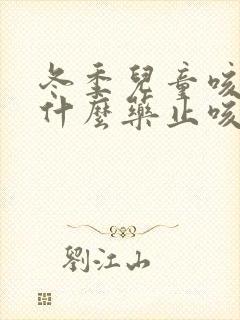 冬季兒童咳
什麼藥止咳
劉江山